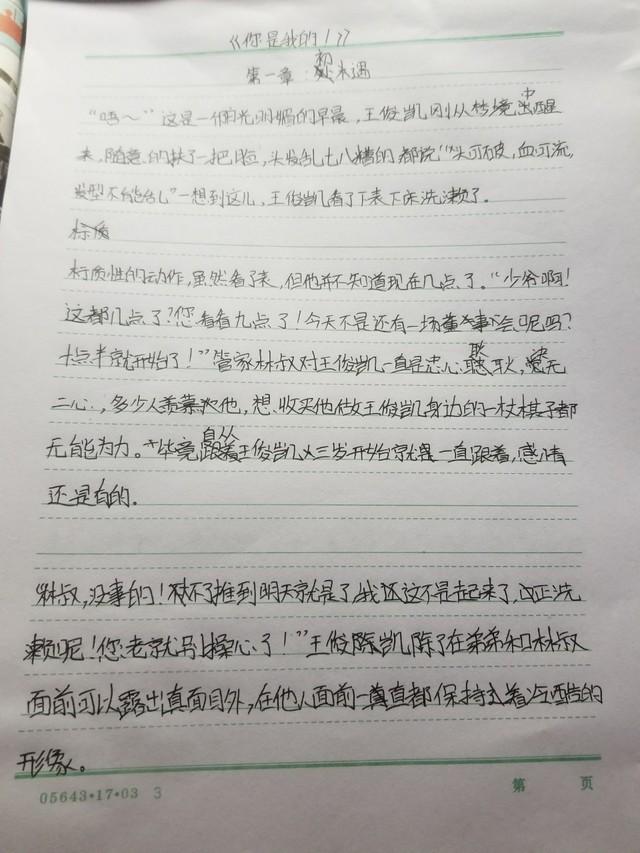 《你是我的！》
第一章：初遇
“唔～”这是一个阳光明媚的早晨，王俊凯刚从梦境中醒
来，随意的抹了一把脸，头发乱七八糟的都说“头可破，血可流，
发型不能乱”一想到这儿，王俊凯看了下表下床洗漱了。
标质
标质性的动作，虽然看了表，但他并不知道现在几点了。“少爷啊！
这都几点了？您看看九点了！今天不是还有一场董事会呢吗？
十点半就开始了！”管家林叔对王俊凯一直是忠心耿耿，决无
二心，多少人羡慕他，想收买他做王俊凯身边的一枚棋子都
无能为力。毕竟自从王俊凯三岁开始就是一直跟着，感情
还是有的。
“林叔，没事的！推到明天就是了，我这不是起来了，正洗
漱呢！您老就别操心了！”王俊凯除了在弟弟和林叔
面前可以露出真面目外，在他人面前一直都保持着冷酷的
形象。
05643·17·03 3
第 页